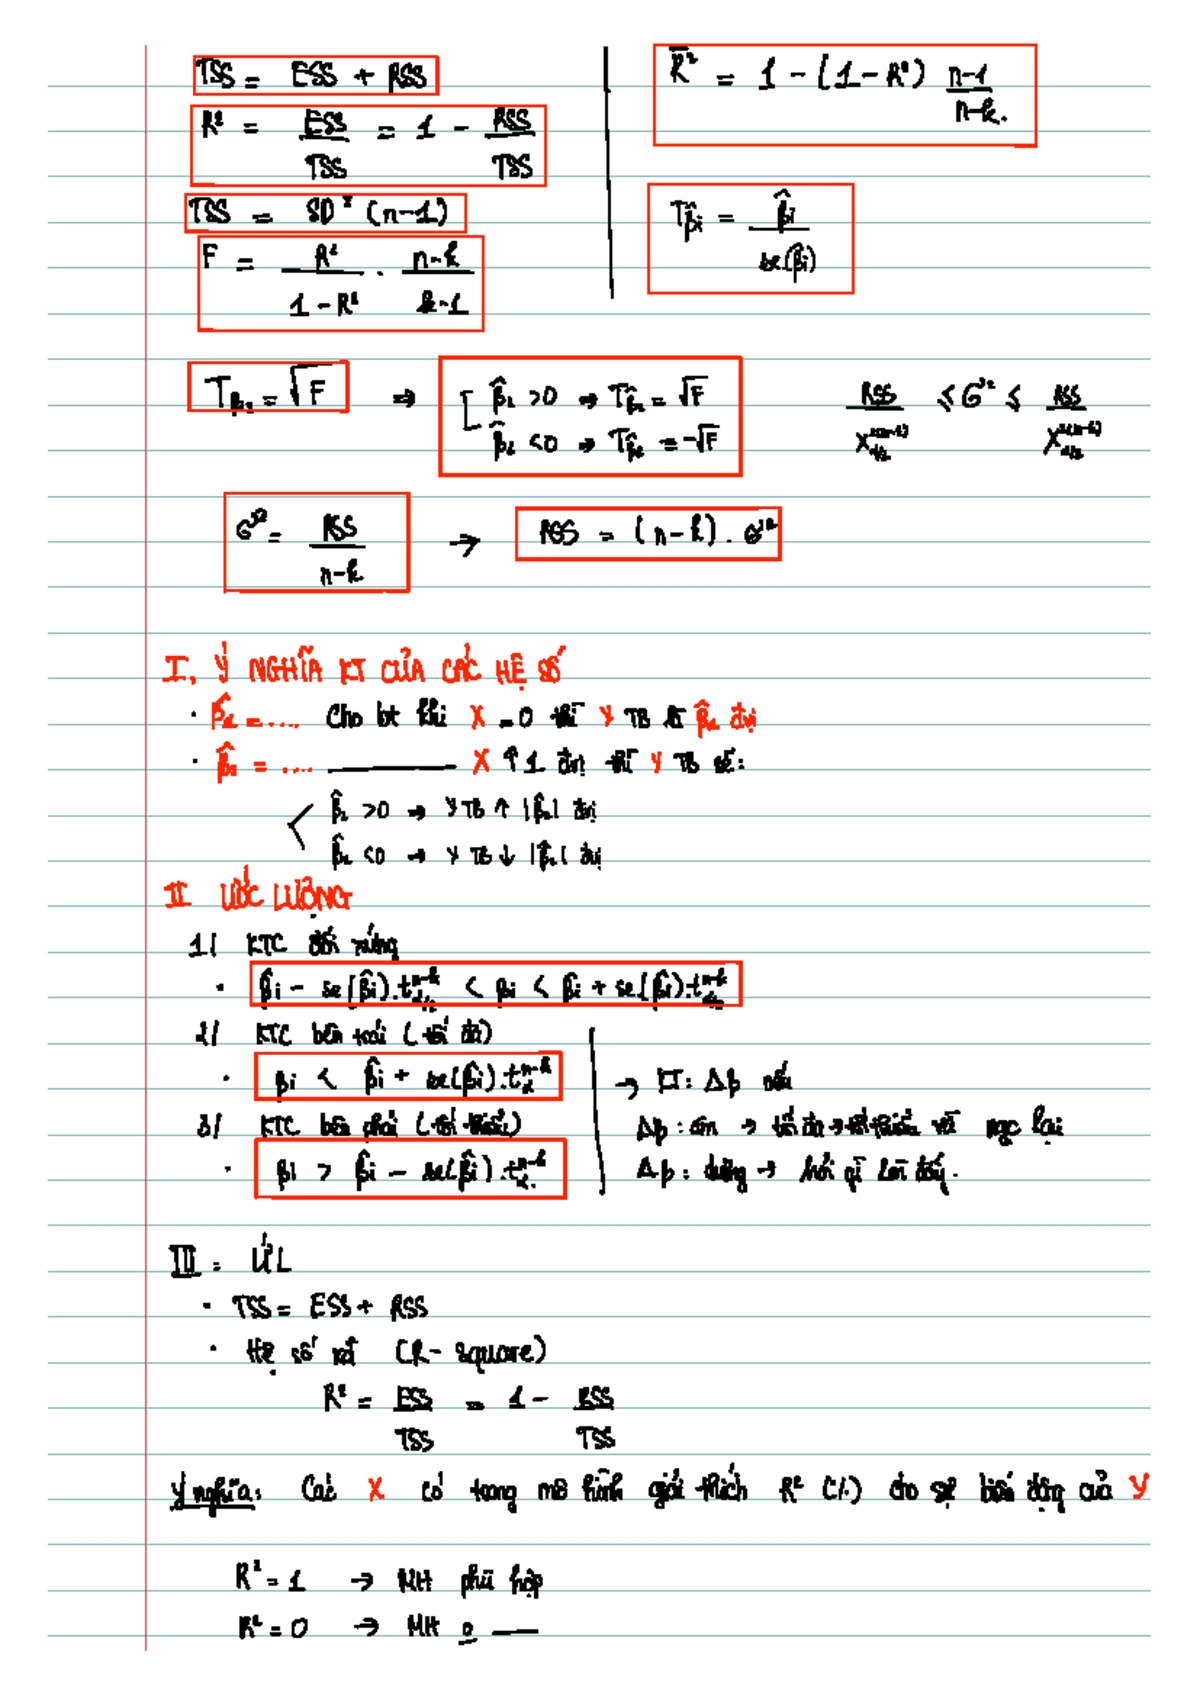 TSS = ESS + RSS
R² = ESS/TSS = 1 - RSS/TSS
TSS = SD² (n-1)
F = R²/(1-R²) . (n-k)/(k-1)
R̄² = 1 - (1-R²) (n-1)/(n-k).
Tβ̂i = β̂i/se(β̂i)
Tβ̂₂ = √F ⇒ [ β̂₂ >0 ⇒ Tβ̂₂ = √F
β̂₂ <0 ⇒ Tβ̂₂ = -√F
RSS/X²⁽ⁿ⁻ᵏ⁾α/2 ≤ σ² ≤ RSS/X²⁽ⁿ⁻ᵏ⁾α/2
σ̂² = RSS/(n-k) → RSS = (n-k) . σ̂²
I, Ý NGHĨA KT CỦA CÁC HỆ SỐ
· = .... Cho bt khi X = 0 thì Y TB là đvị
· = .... ——— X ↑ 1 đvị thì Y TB sẽ:
β̂₂ >0 ⇒ Y TB ↑ |β̂₂| đvị
β̂₂ <0 ⇒ Y TB ↓ |β̂₂| đvị
II ƯỚC LƯỢNG
1/ KTC đối xứng
· β̂i - se(β̂i).tⁿ⁻ᵏα/2 < βi < β̂i + se(β̂i).tⁿ⁻ᵏα/2
2/ KTC bên trái (tối đa)
· βi < β̂i + se(β̂i).tⁿ⁻ᵏα
3/ KTC bên phải (tối thiểu)
· βi > β̂i - se(β̂i).tⁿ⁻ᵏα
→ KT: Δβ nếu
Δβ: âm → tối đa → tối thiểu và ngc lại
Δβ: dương → hỏi gì làm đấy.
III = ƯL
· TSS = ESS + RSS
· Hệ số xđ (R-square)
R² = ESS/TSS = 1 - RSS/TSS
Ý nghĩa: Các X có trong mô hình giải thích R² (%) cho sự biến động của Y
R² = 1 → MH phù hợp
R² = 0 → MH o ——